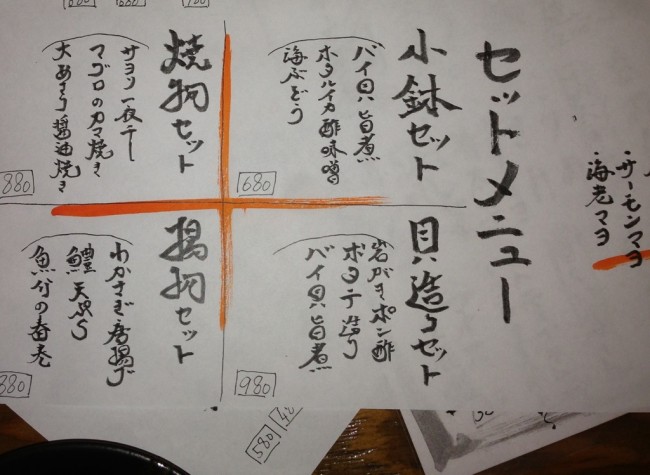 セットメニュー
小鉢セット
バイ貝旨煮
ホタルイカ酢味噌
海ぶどう
680
貝造りセット
岩がきポン酢
ホタテ造り
バイ貝旨煮
980
焼物セット
サヨリ一夜干し
マグロのカマ焼き
大あさり醤油焼き
880
揚物セット
わかさぎ唐揚げ
鱧天ぷら
880
・サーモンマヨ
・海老マヨ
580